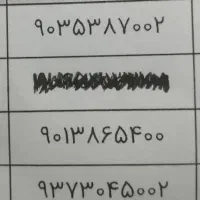 ۹۰۳۵۳۸۷۰۰۲
۹۰۱۳۸۶۵۴۰۰
۹۳۷۳۰۴۵۰۰۲